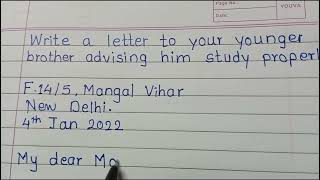 Page No.
Date:
YOUVA
Write a letter to your younger
brother advising him study properl
F.14/5, Mangal Vihar
New Delhi.
4th Jan 2022
My dear Mo